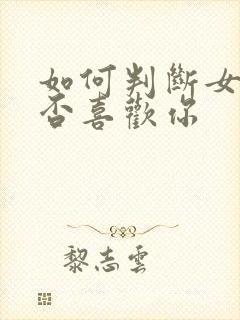 如何判斷女
否喜歡你
黎志雲